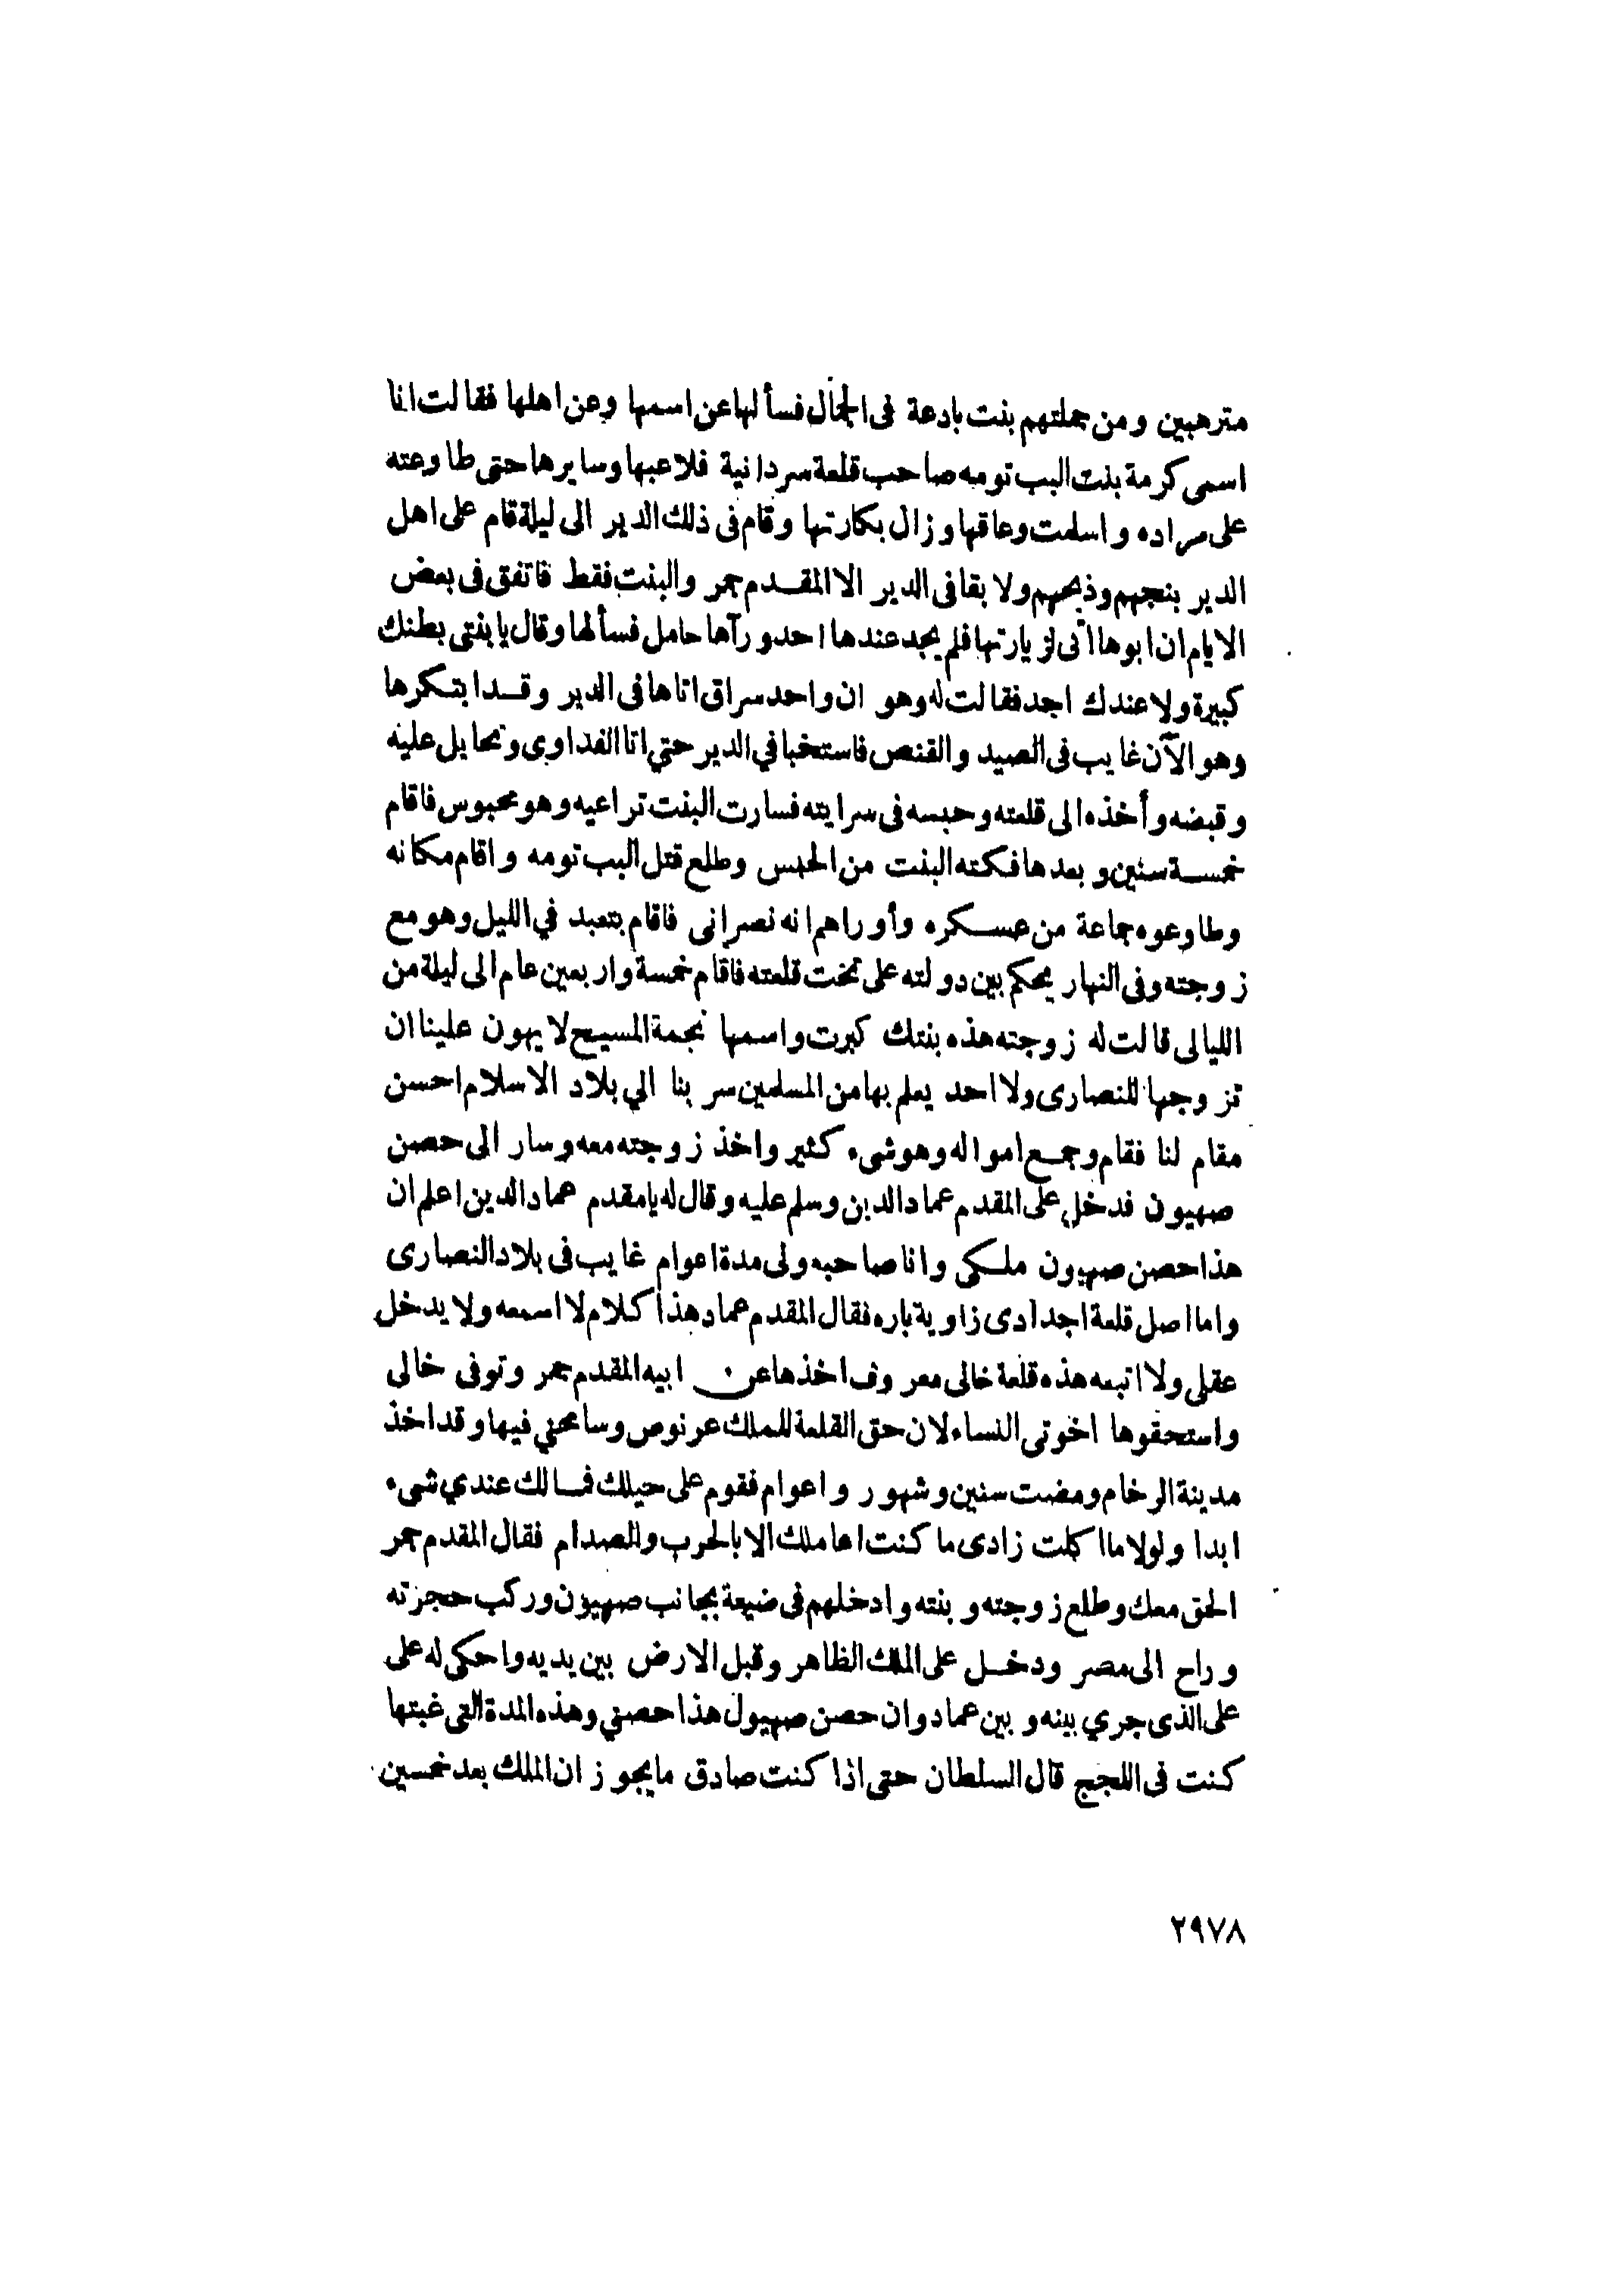 مترهبين ومن جملتهم بنت بادعة فى الجمال فسألها عن اسمها وعن اهلها فقالت انا
اسمى كرمة بنت البب تومه صاحب قلعة سردانية فلاعبها وسايرها حتى طاوعته
على مراده واسلمت وعاقها وزال بكارتها وقام فى ذلك الدير الى ليلة قام على اهل
الدير بنجهم وذبحهم ولا بقا فى الدير الا المقدم جمر والبنت فقط فاتفق فى بعض
الايام ان ابوها اتى لزيارتها فلم يجد عندها احد ورآها حامل فسألها وقال يا بنتى بطنك
كبيرة ولا عندك اجد فقالت له وهو ان واحد سراق اتاها فى الدير وقد ابتكرها
وهو الآن غايب فى الصيد والقنص فاستخبا في الدير حتي اتا الفداوى وتحايل عليه
وقبضه وأخذه الى قلعته وحبسه فى سرايته فسارت البنت تراعيه وهو محبوس فاقام
خمسة سنين وبعدها فكته البنت من الحبس وطلع قتل البب تومه واقام مكانه
وطاوعوه جماعة من عسكره وأوراهم انه نصرانى فاقام يتعبد في الليل وهو مع
زوجته وفى النهار يحكم بين دولته على تخت قلعته فاقام خمسة واربعين عام الى ليلة من
الليالى قالت له زوجته هذه بنتك كبرت واسمها نجمة المسيح لا يهون علينا ان
تزوجها للنصارى ولا احد يعلم بها من المسلمين سر بنا الي بلاد الاسلام احسن
مقام لنا فقام وجمع امواله وهو شىء كثير واخذ زوجته معه وسار الى حصن
صهيون فدخل على المقدم عماد الدين وسلم عليه وقال له يا مقدم عماد الدين اعلم ان
هذا حصن صهيون ملكى وانا صاحبه ولى مدة اعوام غايب فى بلاد النصارى
واما اصل قلعة اجدادى زاوية باره فقال المقدم عماد هذا كلام لا اسمعه ولا يدخل
عقلى ولا اتبعه هذه قلعة خالى معروف اخذها عن ابيه المقدم جمر وتوفى خالى
واستحقوها اخوتى النساء لان حق القلعة للملك عرنوص وسامحني فيها وقد اخذ
مدينة الرخام ومضت سنين وشهور واعوام فقوم على حيلك فمالك عندي شىء
ابدا ولولا ما اكلت زادى ما كنت اعاملك الا بالحرب والصدام فقال المقدم جمر
الحق معك وطلع زوجته وبنته وادخلهم فى ضيعة بجانب صهيون وركب حجزته
وراح الى مصر ودخل على الملك الظاهر وقبل الارض بين يديه واحكى له على
على الذى جري بينه وبين عماد وان حصن صهيول هذا حصني وهذه المدة التى غبتها
كنت فى اللجج قال السلطان حتى اذا كنت صادق ما يجوز ان الملك بعد خمسين
٢٩٧٨